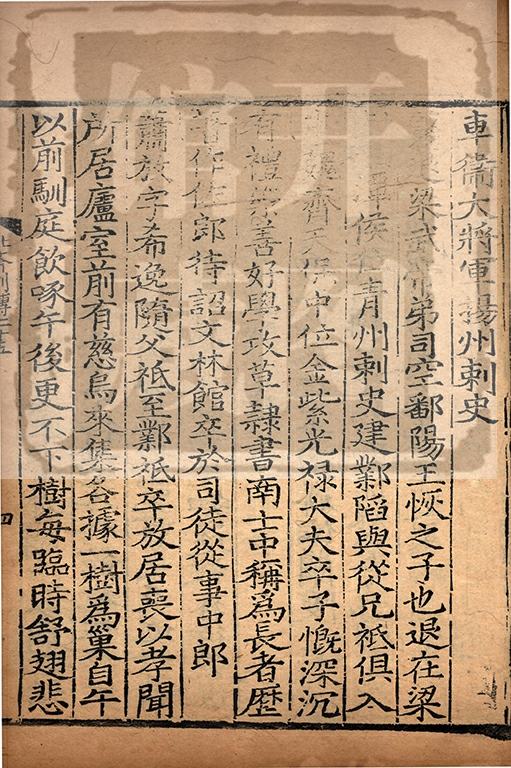 車衛大將軍揚州刺史
蕭退梁武帝弟司空鄱陽王恢之子也退在梁
潭侯位青州刺史建鄴陷與從兄祗俱入
魏齊天保中位金紫光禄大夫卒子慨深沉
有禮樂善好學攻草隷書南士中稱爲長者歴
著作佐郎待詔文林館卒於司徒從事中郎
蕭放字希逸隨父祗至鄴祗卒放居喪以孝聞
所居廬室前有慈烏來集各據一樹爲巢自午
以前馴庭飲啄午後更不下樹每臨時舒翅悲
四